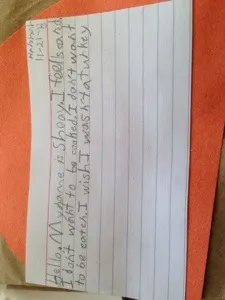 11-21-
Hello. My name is Sheoy. I feel sand
I don't want to be cooked. I don't want
to be catch. I wish I wasn't a turkey